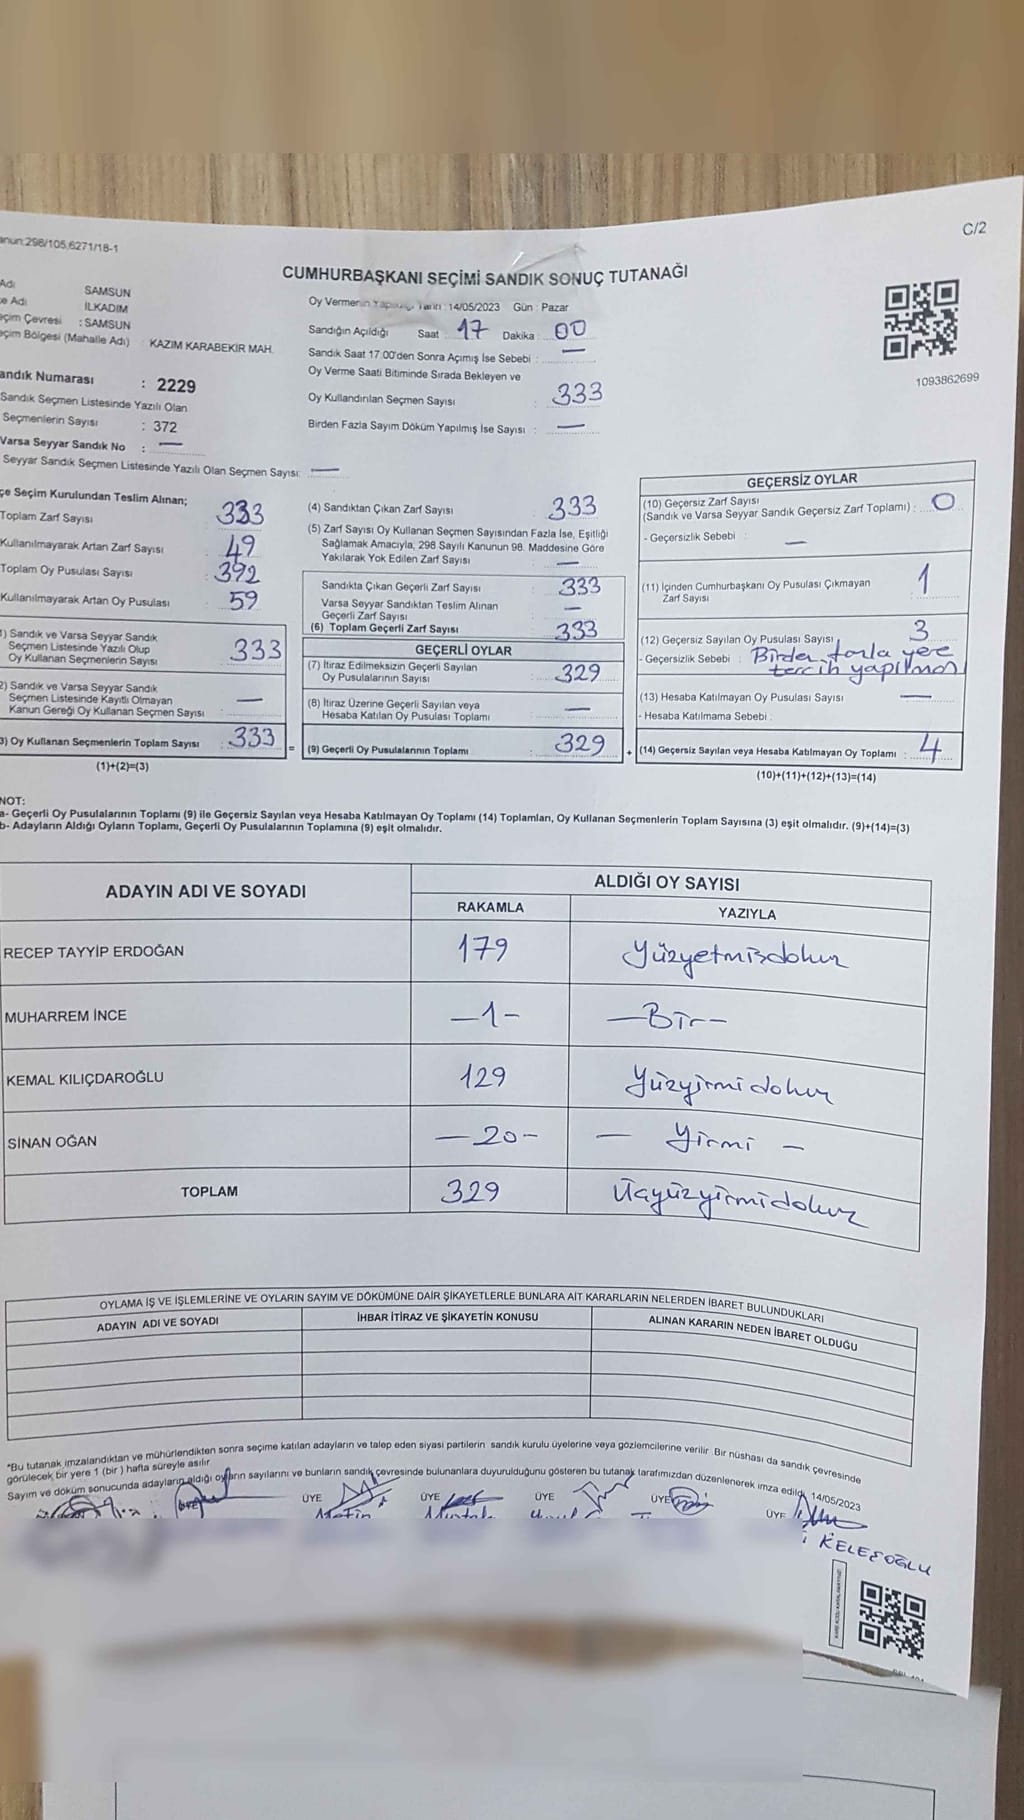 C/2
anun:298/105,6271/18-1
CUMHURBAŞKANI SEÇİMİ SANDIK SONUÇ TUTANAĞI
Adı SAMSUN
e Adı İLKADIM
eçim Çevresi : SAMSUN
eçim Bölgesi (Mahalle Adı) : KAZIM KARABEKİR MAH.
andık Numarası : 2229
Sandık Seçmen Listesinde Yazılı Olan
Seçmenlerin Sayısı : 372
Varsa Seyyar Sandık No : —
Seyyar Sandık Seçmen Listesinde Yazılı Olan Seçmen Sayısı: —
Oy Vermenin Yapıldığı Tarih : 14/05/2023 Gün : Pazar
Sandığın Açıldığı Saat : 17 Dakika : 00
Sandık Saat 17.00'den Sonra Açımış İse Sebebi : —
Oy Verme Saati Bitiminde Sırada Bekleyen ve
Oy Kullandırılan Seçmen Sayısı : 333
Birden Fazla Sayım Döküm Yapılmış İse Sayısı : —
1093862699
çe Seçim Kurulundan Teslim Alınan;
Toplam Zarf Sayısı 333
Kullanılmayarak Artan Zarf Sayısı 49
Toplam Oy Pusulası Sayısı : 392
Kullanılmayarak Artan Oy Pusulası 59
1) Sandık ve Varsa Seyyar Sandık
Seçmen Listesinde Yazılı Olup
Oy Kullanan Seçmenlerin Sayısı 333
2) Sandık ve Varsa Seyyar Sandık
Seçmen Listesinde Kayıtlı Olmayan
Kanun Gereği Oy Kullanan Seçmen Sayısı —
3) Oy Kullanan Seçmenlerin Toplam Sayısı : 333 =
(1)+(2)=(3)
(4) Sandıktan Çıkan Zarf Sayısı : 333
(5) Zarf Sayısı Oy Kullanan Seçmen Sayısından Fazla İse, Eşitliği
Sağlamak Amacıyla, 298 Sayılı Kanunun 98. Maddesine Göre
Yakılarak Yok Edilen Zarf Sayısı —
Sandıkta Çıkan Geçerli Zarf Sayısı : 333
Varsa Seyyar Sandıktan Teslim Alınan
Geçerli Zarf Sayısı —
(6) Toplam Geçerli Zarf Sayısı : 333
GEÇERLİ OYLAR
(7) İtiraz Edilmeksizin Geçerli Sayılan
Oy Pusulalarının Sayısı : 329
(8) İtiraz Üzerine Geçerli Sayılan veya
Hesaba Katılan Oy Pusulası Toplamı : —
(9) Geçerli Oy Pusulalarının Toplamı : 329 +
GEÇERSİZ OYLAR
(10) Geçersiz Zarf Sayısı
(Sandık ve Varsa Seyyar Sandık Geçersiz Zarf Toplamı) : 0
- Geçersizlik Sebebi : —
(11) İçinden Cumhurbaşkanı Oy Pusulası Çıkmayan
Zarf Sayısı : 1
(12) Geçersiz Sayılan Oy Pusulası Sayısı 3
- Geçersizlik Sebebi : Birden fazla yere
tercih yapılması
(13) Hesaba Katılmayan Oy Pusulası Sayısı —
- Hesaba Katılmama Sebebi :
(14) Geçersiz Sayılan veya Hesaba Katılmayan Oy Toplamı : 4
(10)+(11)+(12)+(13)=(14)
NOT:
a- Geçerli Oy Pusulalarının Toplamı (9) ile Geçersiz Sayılan veya Hesaba Katılmayan Oy Toplamı (14) Toplamları, Oy Kullanan Seçmenlerin Toplam Sayısına (3) eşit olmalıdır. (9)+(14)=(3)
b- Adayların Aldığı Oyların Toplamı, Geçerli Oy Pusulalarının Toplamına (9) eşit olmalıdır.
ADAYIN ADI VE SOYADI ALDIĞI OY SAYISI
RAKAMLA YAZIYLA
RECEP TAYYİP ERDOĞAN 179 Yüzyetmişdokuz
MUHARREM İNCE —1— —Bir—
KEMAL KILIÇDAROĞLU 129 Yüzyirmidokuz
SİNAN OĞAN —20— — Yirmi —
TOPLAM 329 Üçyüzyirmidokuz
OYLAMA İŞ VE İŞLEMLERİNE VE OYLARIN SAYIM VE DÖKÜMÜNE DAİR ŞİKAYETLERLE BUNLARA AİT KARARLARIN NELERDEN İBARET BULUNDUKLARI
ADAYIN ADI VE SOYADI İHBAR İTİRAZ VE ŞİKAYETİN KONUSU ALINAN KARARIN NEDEN İBARET OLDUĞU
*Bu tutanak imzalandıktan ve mühürlendikten sonra seçime katılan adayların ve talep eden siyasi partilerin sandık kurulu üyelerine veya gözlemcilerine verilir. Bir nüshası da sandık çevresinde
görülecek bir yere 1 (bir) hafta süreyle asılır
Sayım ve döküm sonucunda adayların aldığı oyların sayılarını ve bunların sandık çevresinde bulunanlara duyurulduğunu gösteren bu tutanak tarafımızdan düzenlenerek imza edildi. 14/05/2023
ÜYE ÜYE ÜYE ÜYE ÜYE
Metin
KELEŞOĞLU